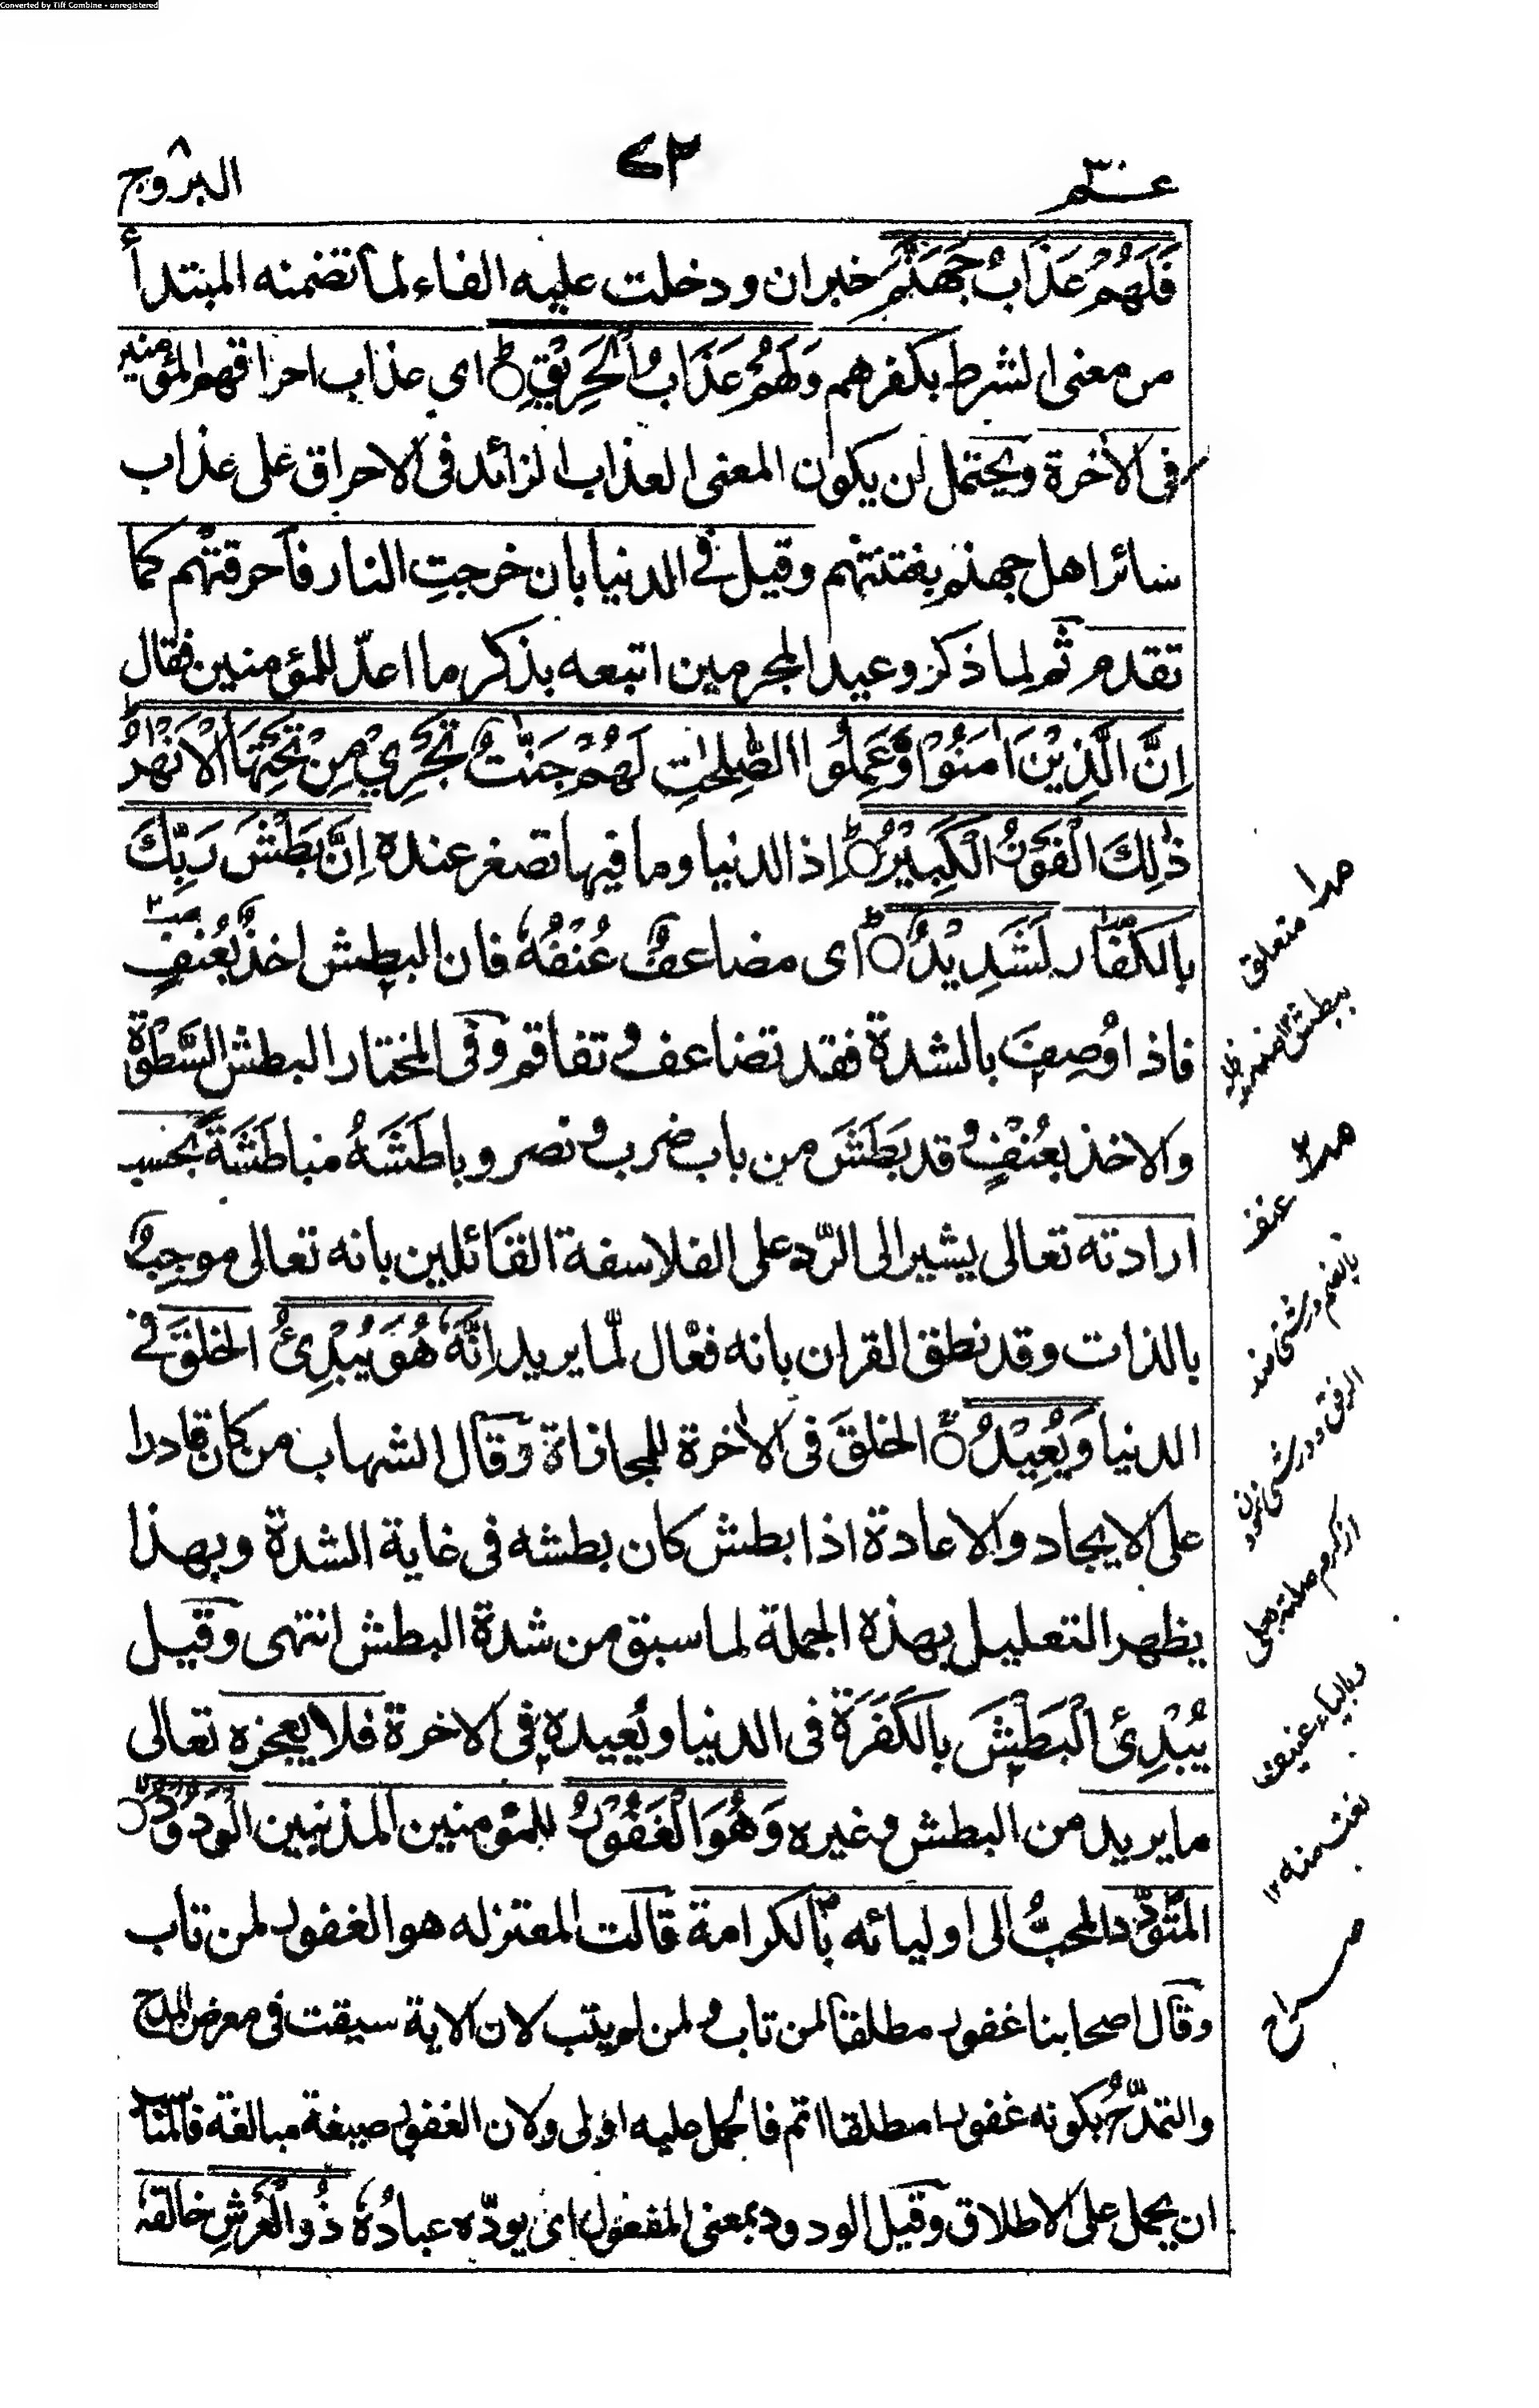 Converted by Tiff Combine - unregistered
عـمّ ٣٠
٧٣
البروج
فَلَهُمْ عَذَابُ جَهَنَّمَ خبر ان ودخلت عليه الفاء لما تضمنه المبتدأ
من معنى الشرط بكفرهم وَلَهُمْ عَذَابُ الْحَرِيْقِ ای عذاب احراقهم المؤمنین
فى الاخرة ويحتمل ان يكون المعنى العذاب الزائد فى الاحراق على عذاب
سائر اهل جهنم بفتنتهم وقيل فى الدنيا بان خرجتِ النار فاحرقتهم كما
تقدم ثم لما ذكر وعيد المجرمين اتبعه بذكر ما اعدّ للمؤمنين فقال
اِنَّ الَّذِيْنَ اٰمَنُوْا وَعَمِلُوا الصّٰلِحٰتِ لَهُمْ جَنّٰتٌ تَجْرِيْ مِنْ تَحْتِهَا الْاَنْهٰرُ
ذٰلِكَ الْفَوْزُ الْكَبِيْرُ اذ الدنيا وما فيها تصغر عنده اِنَّ بَطْشَ رَبِّكَ
بالكفّار لَشَدِيْدٌ ای مضاعف عُنْفُهٗ فان البطش اخذٌ بعُنفٍ
فاذا وُصِفَ بالشدة فقد تضاعف وتفاقم وفى المختار البطش السَّطْوَة
والاخذ بعُنْفٍ وقد بَطَشَ من باب ضرب ونصر وباطَشَهُ مباطَشَةً بحسب
ارادته تعالى يشير الى الرّد على الفلاسفة القائلين بانه تعالى موجِب
بالذات وقد نطق القران بانه فعّال لّما يريد اِنَّهٗ هُوَ يُبْدِئُ الخلقَ فى
الدنيا وَيُعِيْدُ الخلقَ فى الاٰخرة للمجازاة وقال الشهاب من كان قادرا
على الايجاد والاعادة اذا بطش كان بطشه فى غاية الشدة وبهذا
يظهر التعليل بهذه الجملة لما سبق من شدة البطش انتهى وقيل
يُبْدِئُ الْبَطْشَ بالكَفَرَة فى الدنيا ويُعيده فى الاخرة فلا يعجزه تعالى
ما يريد من البطش وغيره وَهُوَ الْغَفُوْرُ للمؤمنين المذنبين الْوَدُوْدُ
المتودّد المحبُّ الى اوليائه بالكرامة قالت المعتزله هو الغفور لمن تاب
وقال اصحابنا غفور مطلقا لمن تاب ولمن لم يتب لان الاية سيقت فى معرض المدح
والتمدّحُ بكونه غفورا مطلقا اتم فالحمل عليه اولى ولان الغفور صيغة مبالغة فالمناسب
ان يحمل على الاطلاق وقيل الودود بمعنى المفعول ای يودّه عبادُهٗ ذُو الْعَرْشِ خالقُهٗ
متعلق
ببطش
عنف
بالضم درشتی ضد
الرفق ودرشتی نمودن
از كرم
وبالياء عنيف
نعت منه ١٢
صراح